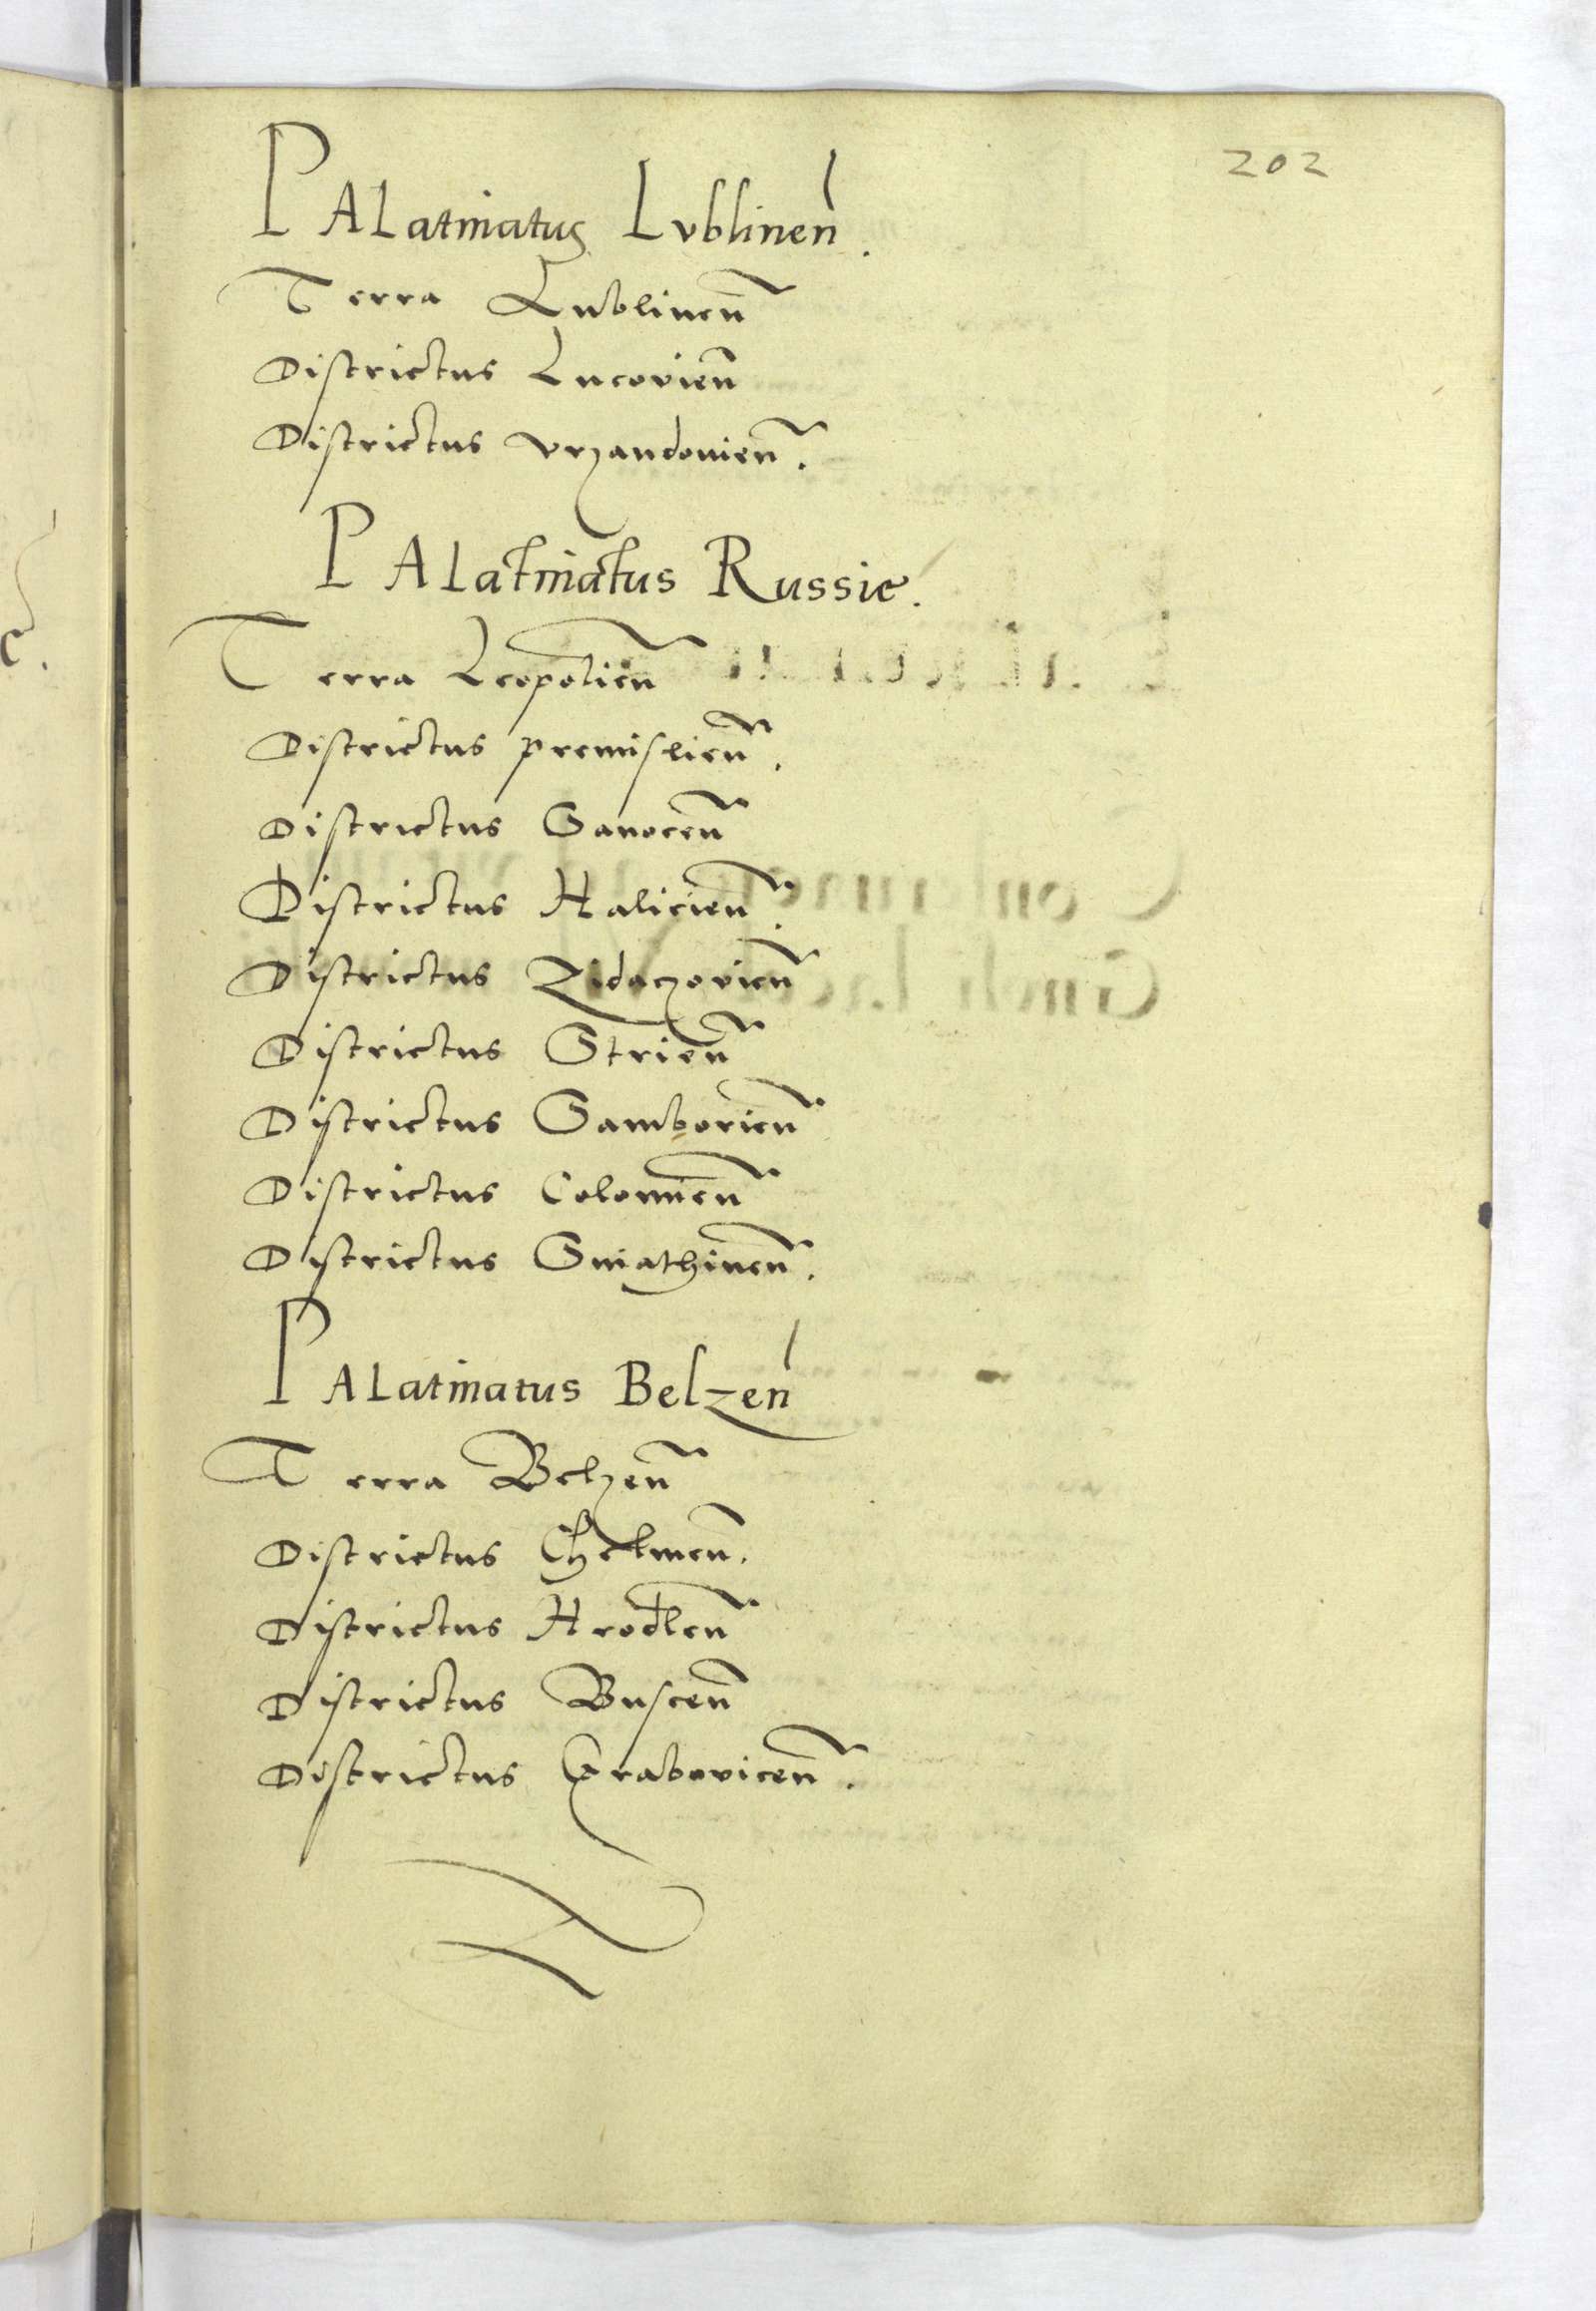 202
PALatinatus Lublinen̄.
Terra Lublinen̄
Districtus Lucovien̄
Districtus Vrzandouien̄.
PALatinatus Russie.
Terra Leopolien̄
Districtus premislien̄.
Districtus Sanocen̄
Districtus Halicien̄.
Districtus Zidaczovien̄
Districtus Strien̄
Districtus Samborien̄
Districtus Colomien̄
Districtus Sniathinen̄.
PALatinatus Belzen̄
Terra Belzen̄
Districtus Chelmen̄.
Districtus Hrodlen̄
Districtus Buscen̄
Districtus Grabovicen̄.